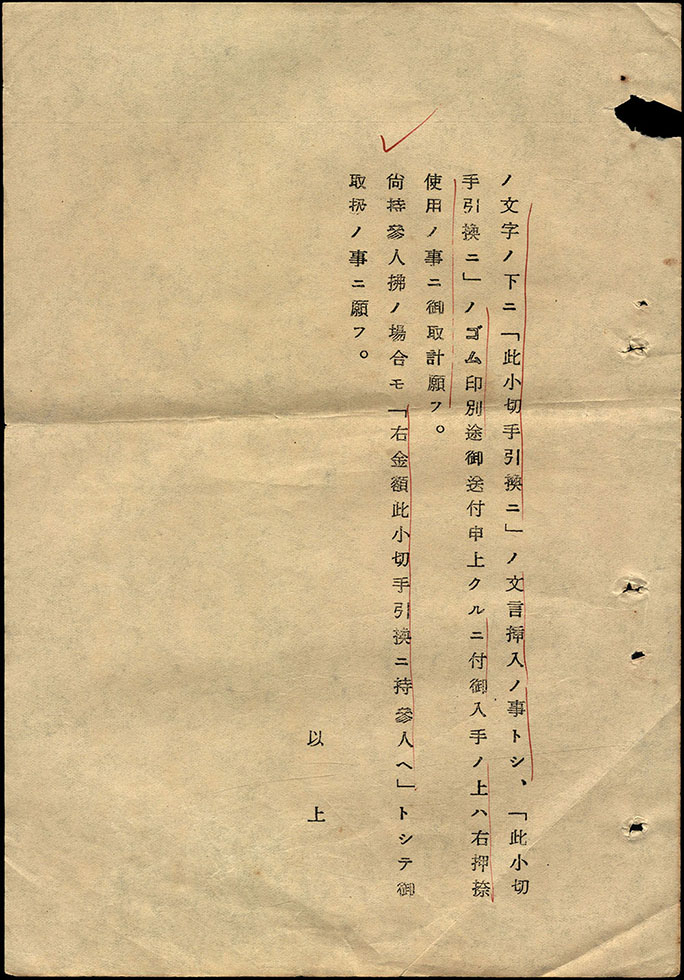 ノ文字ノ下ニ「此小切手引換ニ」ノ文言挿入ノ事トシ、「此小切
手引換ニ」ノゴム印別途御送付申上クルニ付御入手ノ上ハ右押捺
使用ノ事ニ御取計願フ。
尚持參人拂ノ場合モ「右金額此小切手引換ニ持參人ヘ」トシテ御
取扱ノ事ニ願フ。
以上